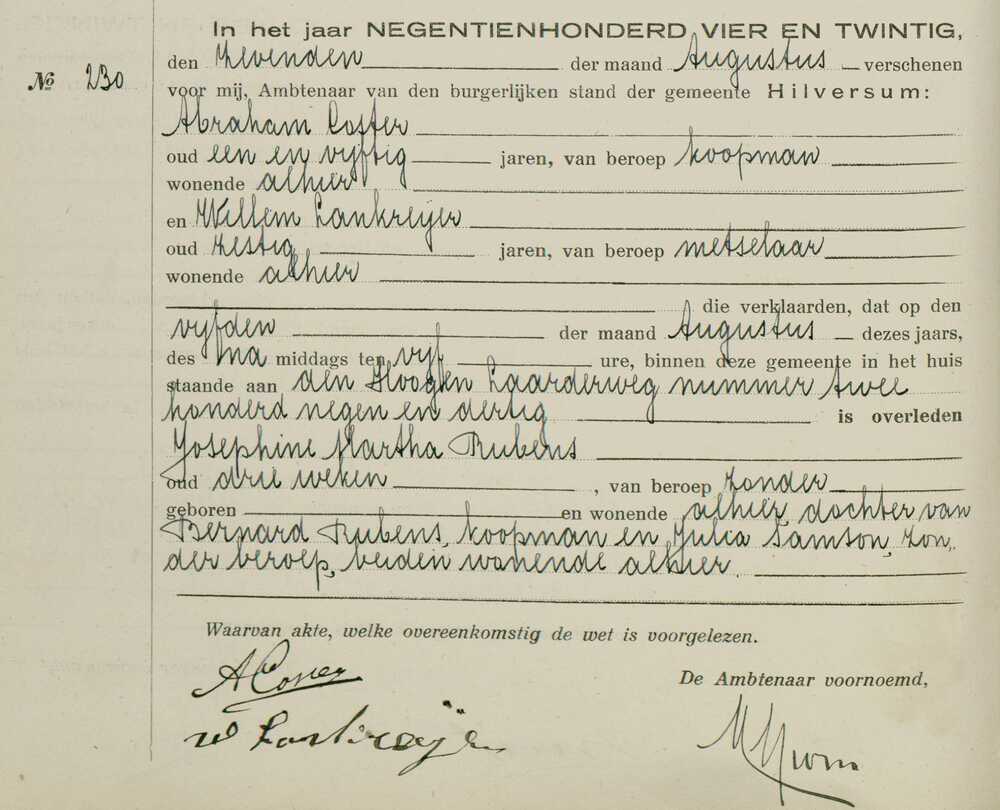 In het jaar NEGENTIENHONDERD VIER EN TWINTIG,
den Zevenden der maand Augustus verschenen
No 230
voor mij, Ambtenaar van den burgerlijken stand der gemeente Hilversum:
Abraham Coster
oud een en vijftig jaren, van beroep koopman
wonende alhier
en Willem Lankreijer
oud zestig jaren, van beroep metselaar
wonende alhier
die verklaarden, dat op den
vijfden der maand Augustus dezes jaars,
des na middags ten vijf ure, binnen deze gemeente in het huis
staande aan den Hoogen Laarderweg nummer twee
honderd negen en dertig is overleden
Josephine Martha Rubens
oud drie weken, van beroep zonder
geboren en wonende alhier, dochter van
Bernard Rubens, koopman en Julia Samson, zon
der beroep, beiden wonende alhier.
Waarvan akte, welke overeenkomstig de wet is voorgelezen.
A Coster
De Ambtenaar voornoemd,
W Lankreijer